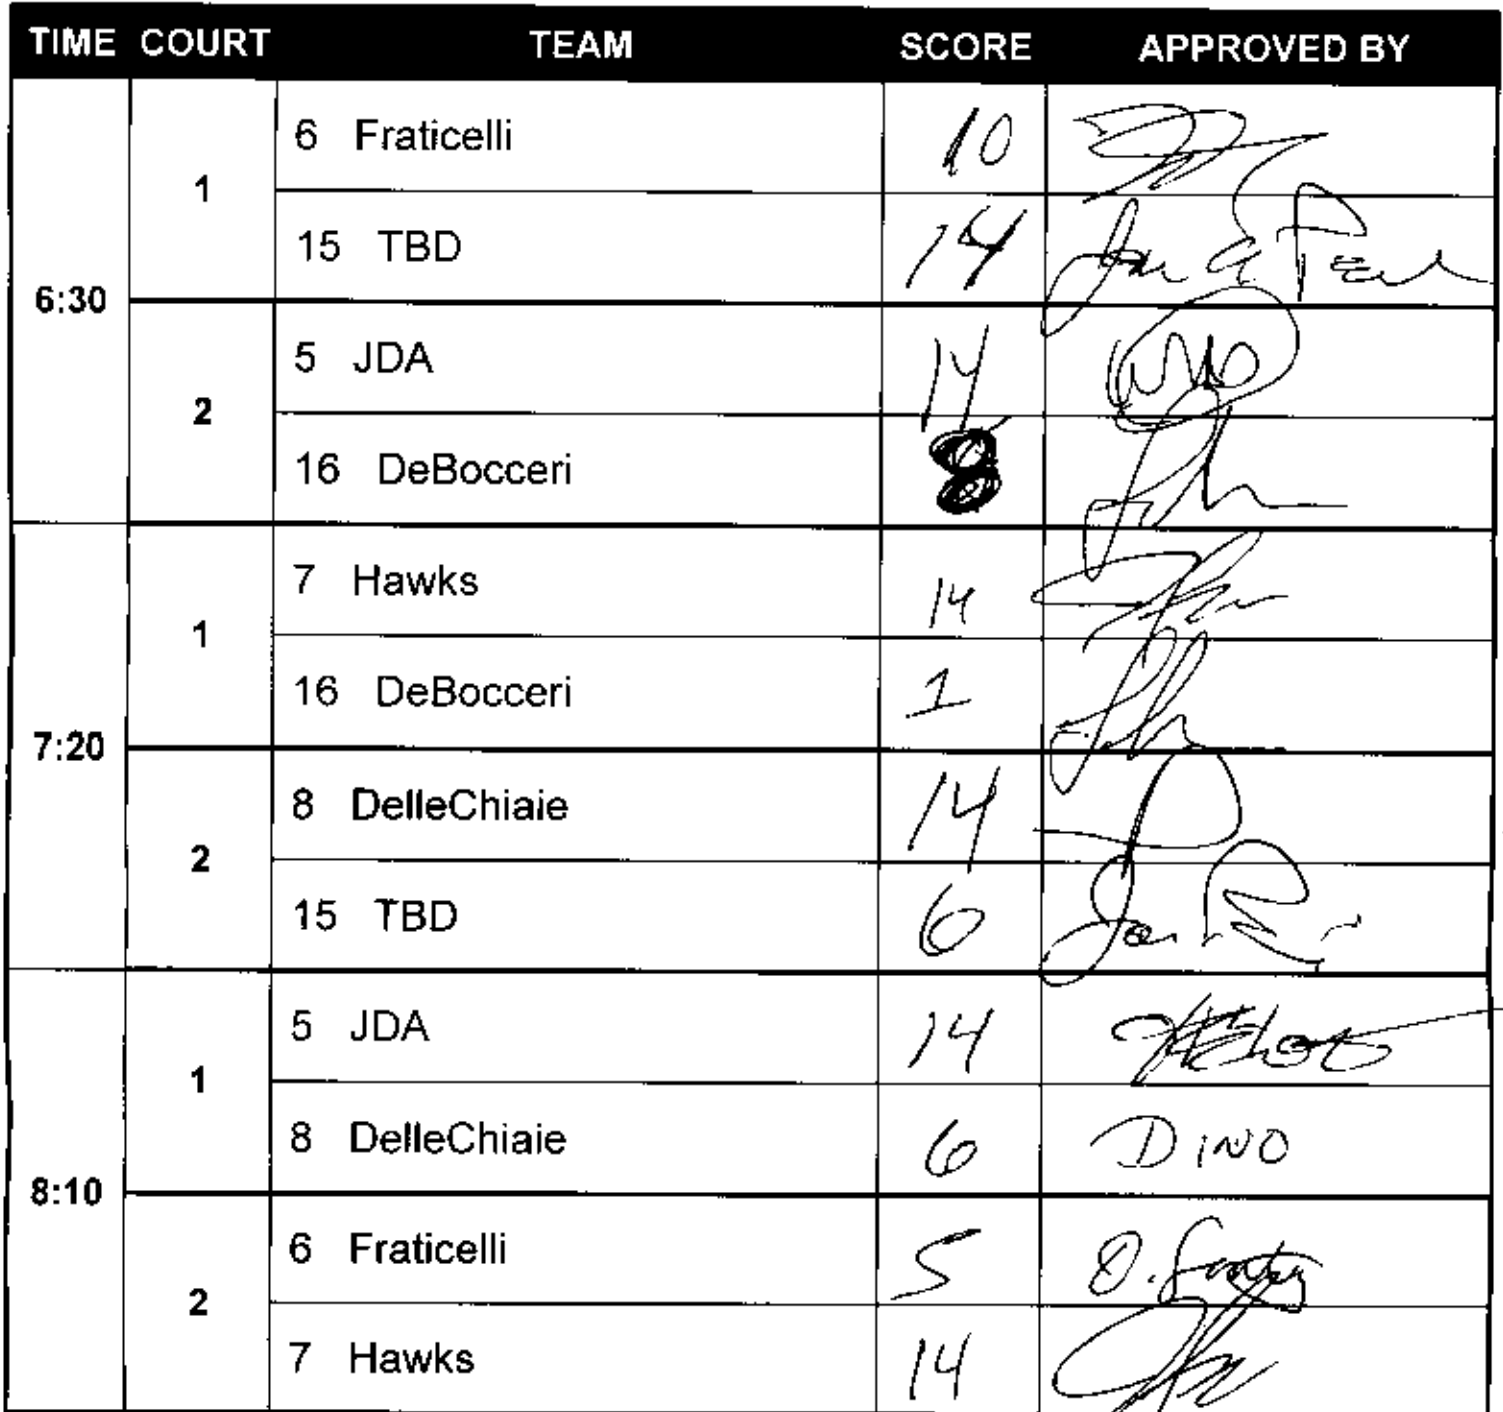 TIME COURT TEAM SCORE APPROVED BY
6:30
1
6 Fraticelli 10
15 TBD 14
2
5 JDA 14
16 DeBocceri 8
7:20
1
7 Hawks 14
16 DeBocceri 1
2
8 DelleChiaie 14
15 TBD 6
8:10
1
5 JDA 14
8 DelleChiaie 6 DINO
2
6 Fraticelli 5
7 Hawks 14